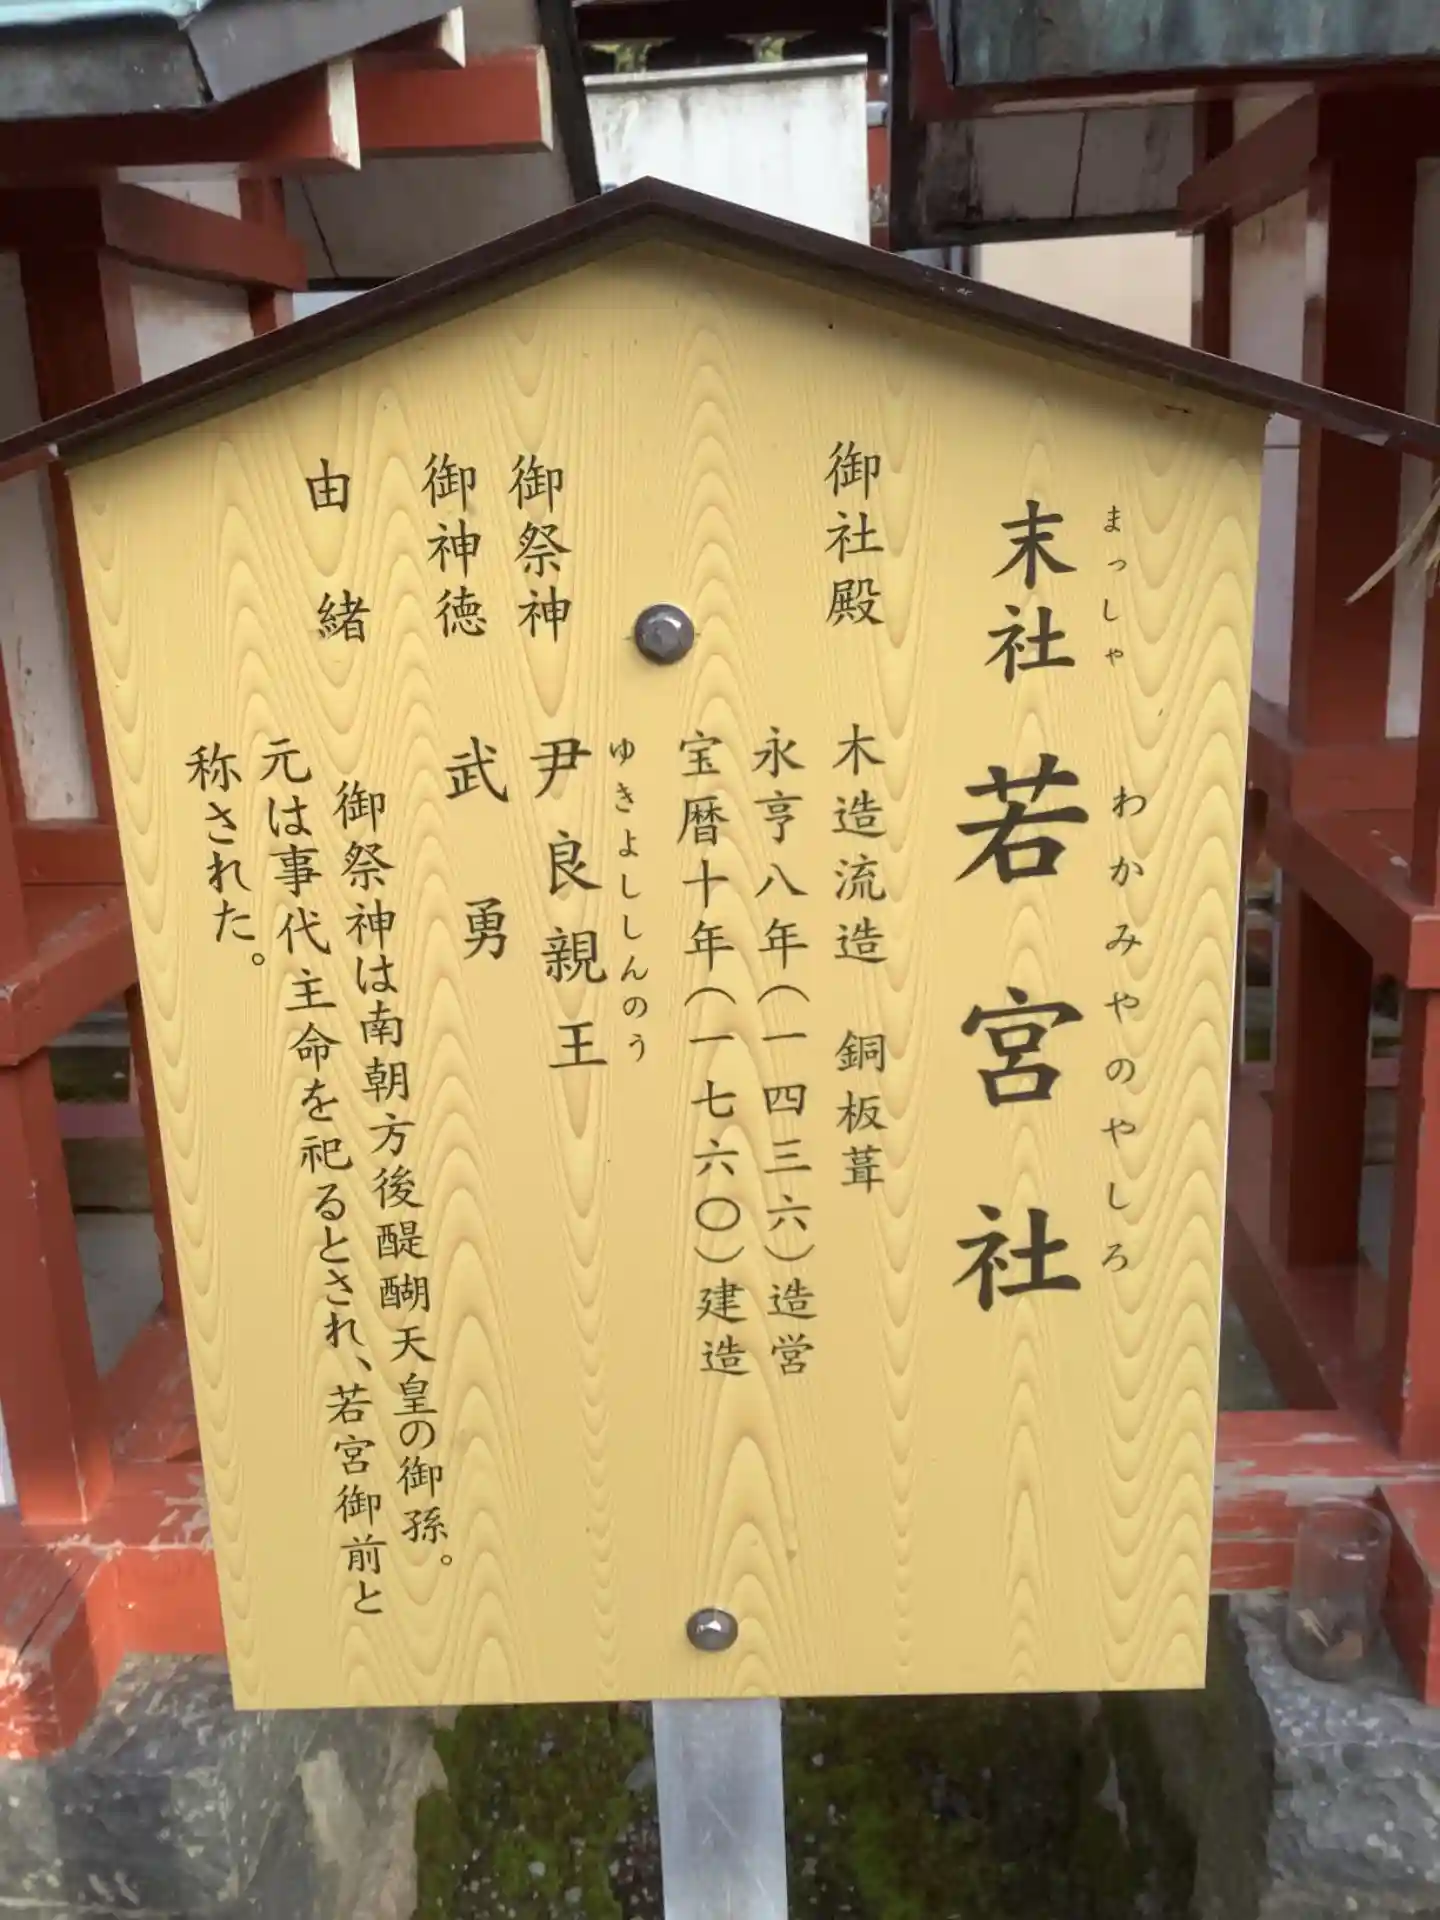 まっしゃ わかみやのやしろ
末社 若宮社
御社殿 木造流造 銅板葺
永亨八年(一四三六)造営
宝暦十年(一七六〇)建造
ゆきよししんのう
御祭神 尹良親王
御神徳 武勇
由緒 御祭神は南朝方後醍醐天皇の御孫。
元は事代主命を祀るとされ、若宮御前と
称された。